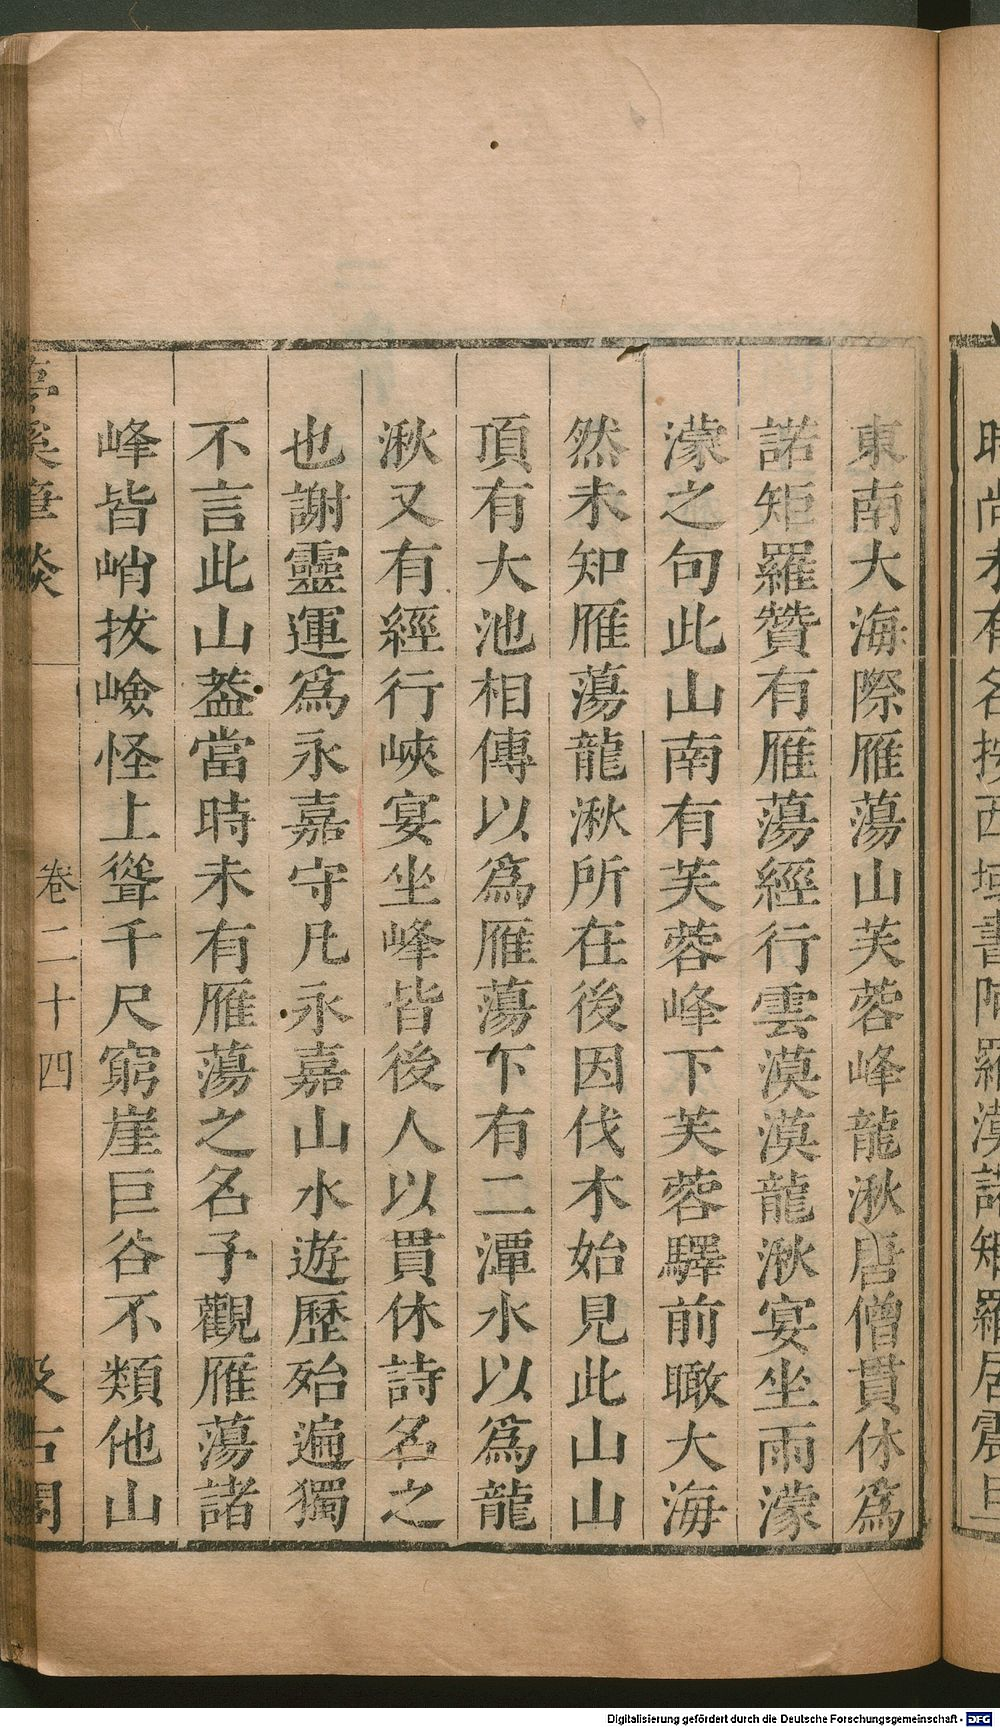 時尚未有名按西域書阿羅漢諾矩羅居震旦
東南大海際雁蕩山芙蓉峰龍湫唐僧貫休爲
諾矩羅贊有雁蕩經行雲漠漠龍湫宴坐雨濛
濛之句此山南有芙蓉峰下芙蓉驛前瞰大海
然未知雁蕩龍湫所在後因伐木始見此山山
頂有大池相傳以爲雁蕩下有二潭水以爲龍
湫又有經行峽宴坐峰皆後人以貫休詩名之
也謝靈運爲永嘉守凡永嘉山水遊歷殆遍獨
不言此山葢當時未有雁蕩之名予觀雁蕩諸
峰皆峭拔嶮怪上聳千尺窮崖巨谷不類他山
夢溪筆談 卷二十四 汲古閣
Digitalisierung gefördert durch die Deutsche Forschungsgemeinschaft - DFG